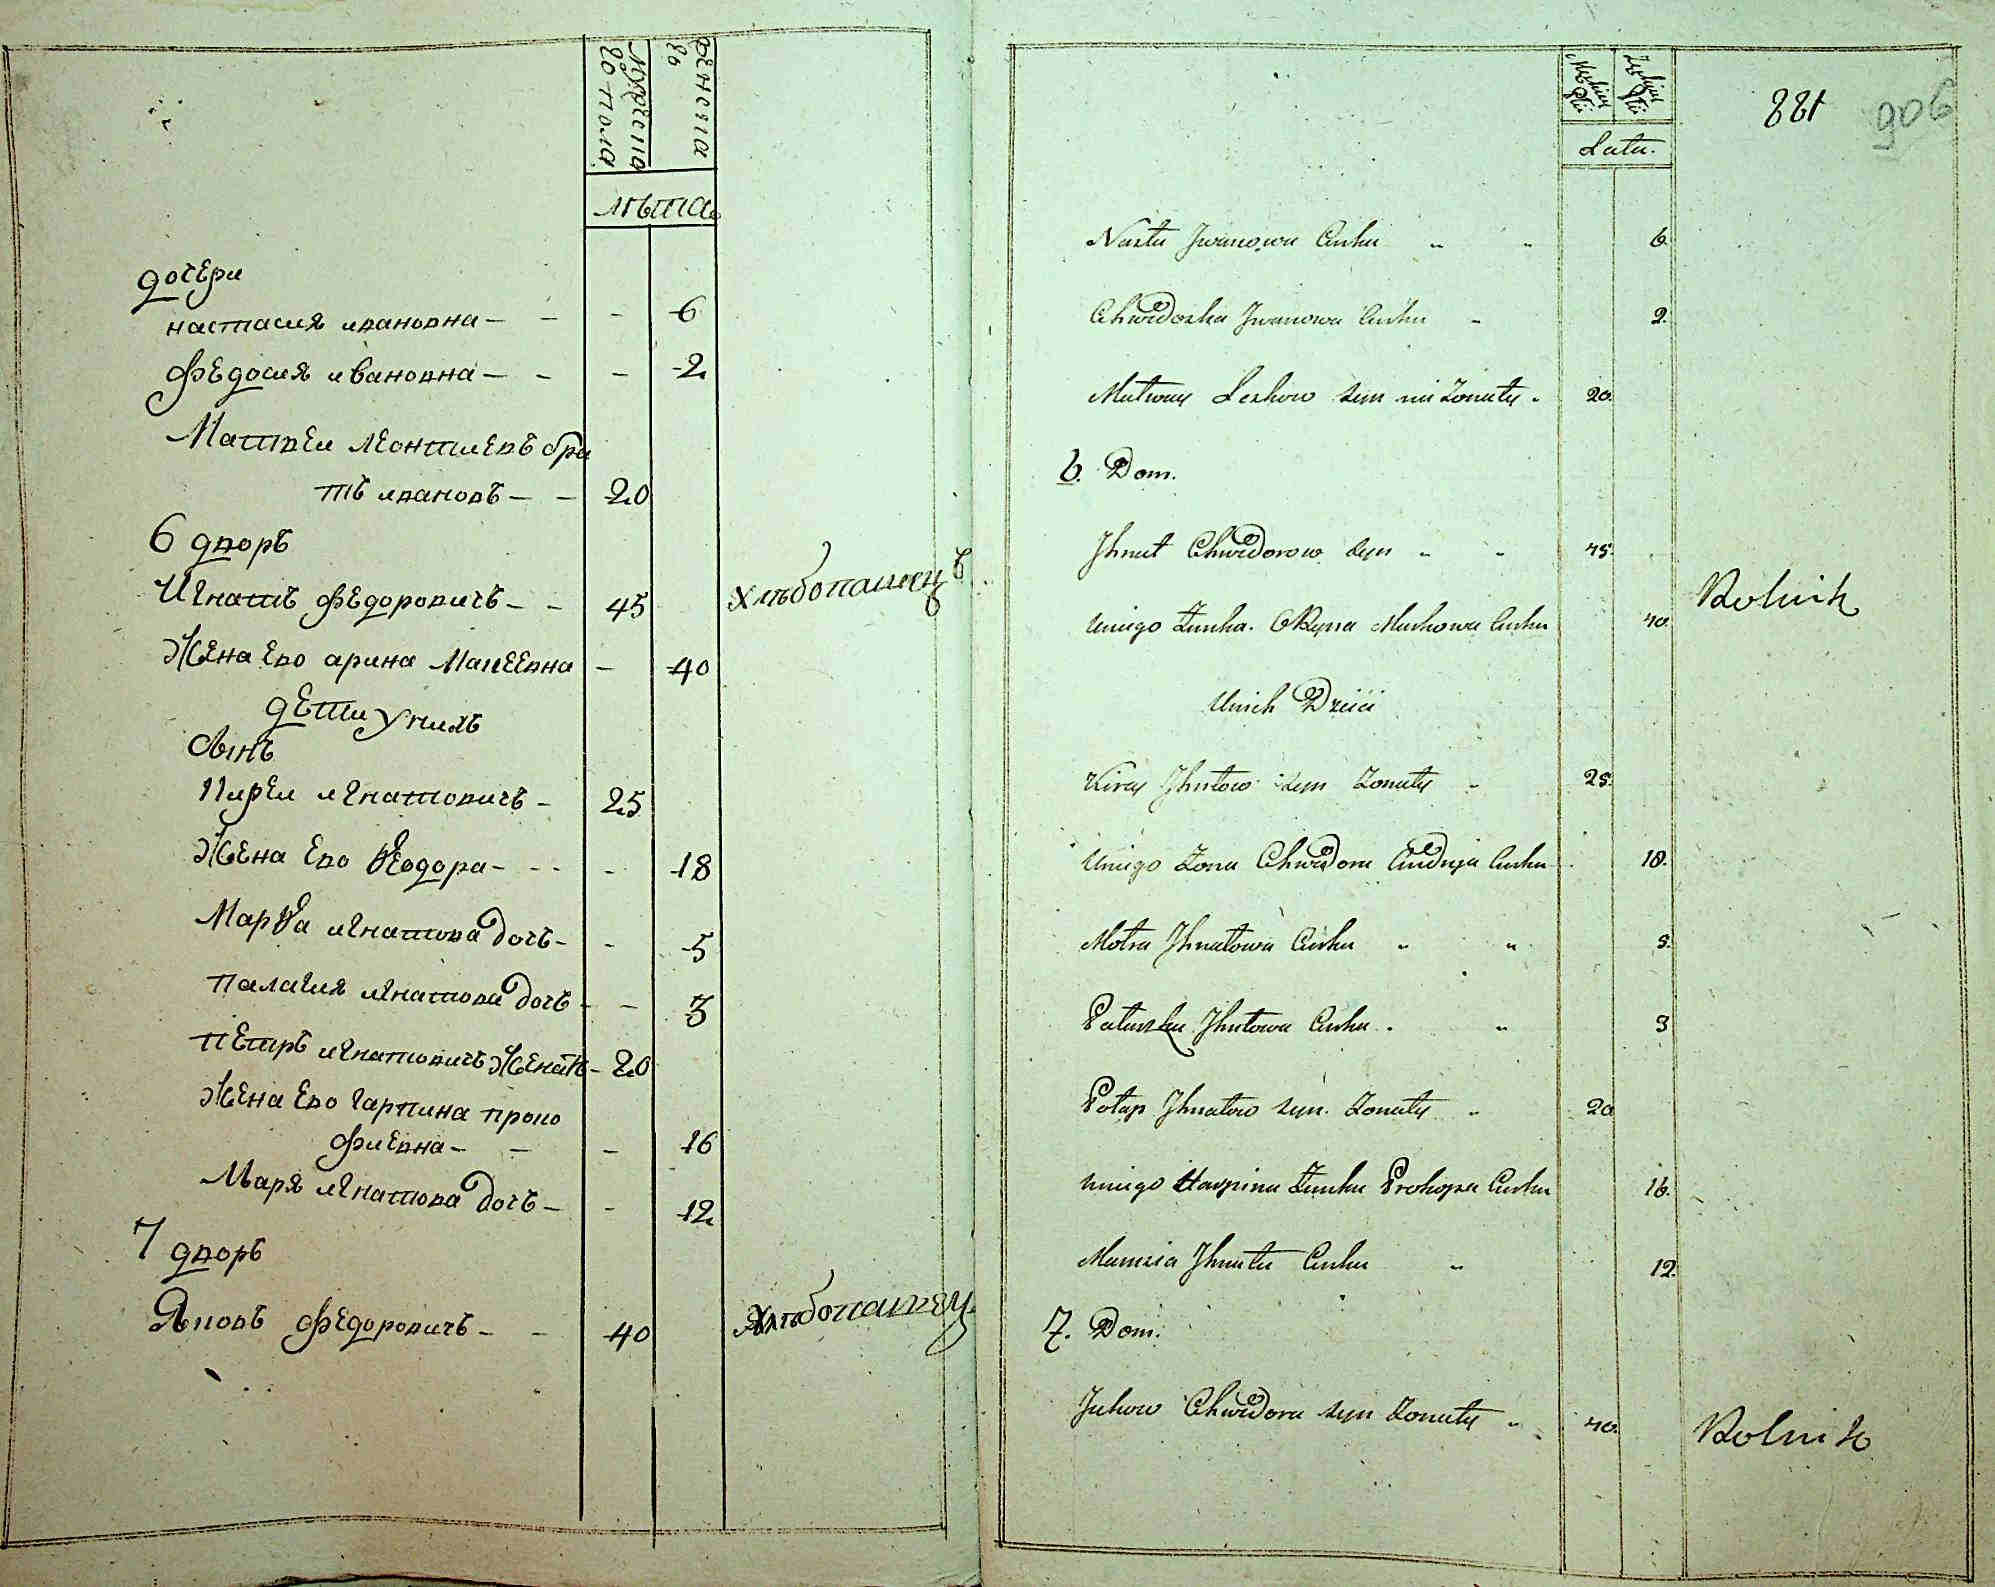 мужеска
го пола
женска
го
лѣта
дочери
настасия ивановна - - - 6
федосия ивановна - - - 2
Матвеи леонтиевъ бра
тъ ивановъ - - 20
6 дворъ
Игнатъ федоровичъ - - 45 хлѣбопашецъ
Жена ево арина Макеевна - 40
дети у нихъ
Сынъ
Киреи игнатовичъ - 25
Жена ево Ѳеодора - - - - 18
Марѳа игнатова дочь - - 5
палагия игнатова дочь - - 3
петръ игнатовичъ женатъ - 20
Жена ево гарпина проко
фиевна - - - 16
Маря игнатова дочь - - 12
7 дворъ
Яковъ федоровичъ - - 40 хлѣбопашец
Męskiey
Płci
Żeńskiey
Płci
Lata.
881
906
Nasta Iwanowa Curka " " 6.
Chwedoska Iwanowa Curka " 2.
Matwey Leskow syn nie żonaty " 20.
6. Dom.
Ihnat Chwedorow syn " " 45. Rolnik
Uniego Żunka Oryna Markowa Curka 40.
Unich Dzieci
Kirey Ihnatow syn Żonaty " 25.
Uniego Żona Chwedora Audeja Curka 18.
Motra Ihnatowa Curka " " 5.
Pałaszka Ihnatowa Curka " " 3
Potap Ihnatow syn Żonaty " 20
uniego Harpina Żunka Prokopa Curka 16.
Marusia Ihnata Curka " 12.
7. Dom.
Jakow Chwedora syn Żonaty " 40. Rolnik